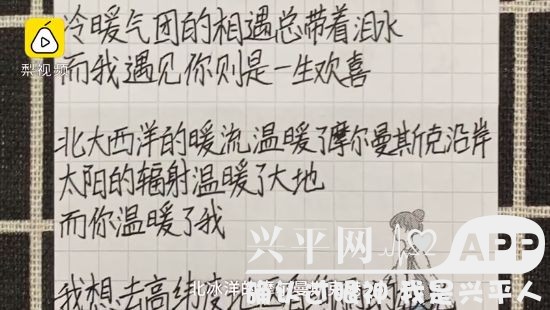 冷暖气团的相遇总带着泪水
梨视频
而我遇见你则是一生欢喜
北大西洋的暖流温暖了摩尔曼斯克沿岸
太阳的辐射温暖了大地
而你温暖了我
兴平网
APP
我想去高纬度地区
北冰洋的摩尔曼斯克
我是兴平人